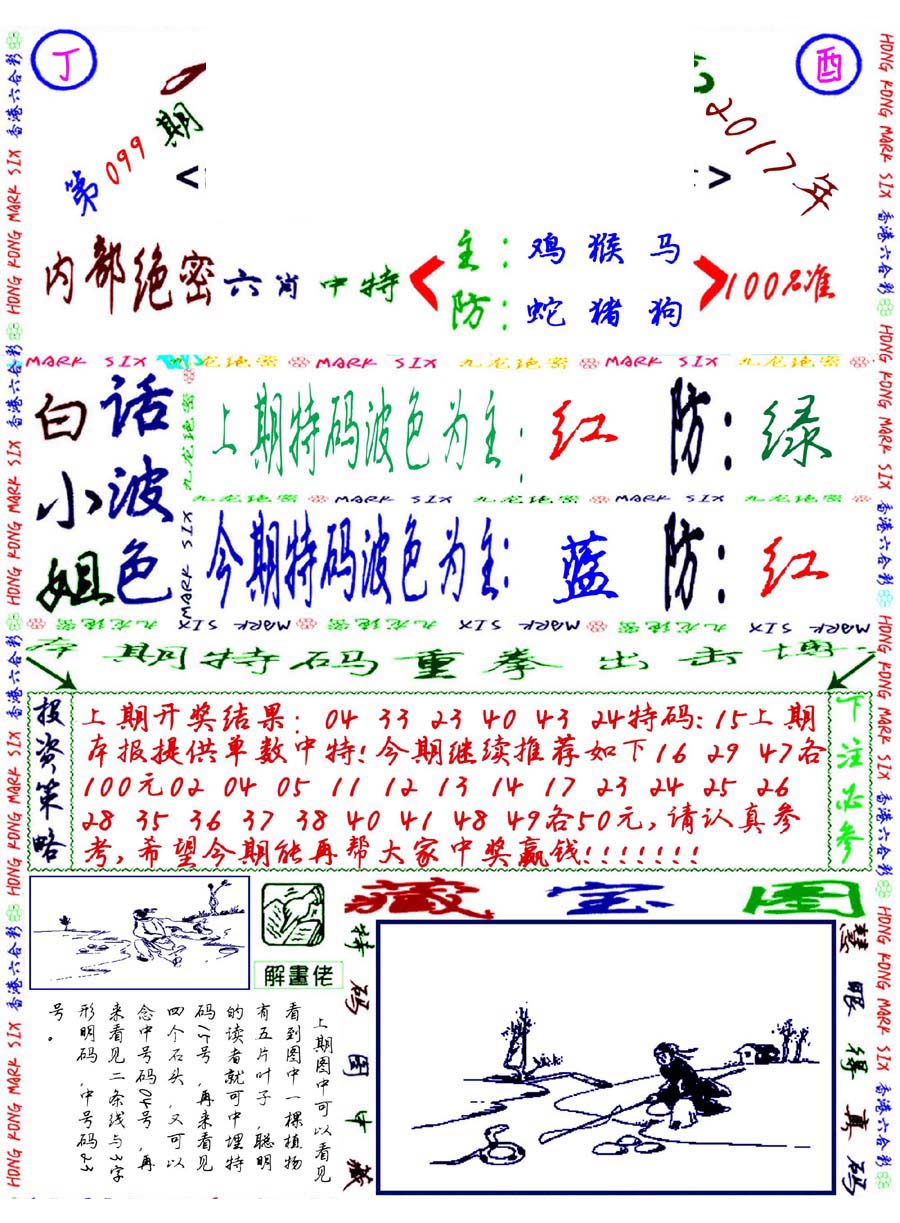 丁
酉
第099期
2017年
<
>
内部绝密六肖中特
主：鸡猴马
防：蛇猪狗
100%准
MARK SIX 九龙绝密 MARK SIX 九龙绝密 MARK SIX 九龙绝密
白话小波姐色
上期特码波色为主：红 防：绿
九龙绝密 MARK SIX 九龙绝密 MARK SIX 九龙绝密
今期特码波色为主：蓝 防：红
九龙绝密 MARK SIX
本期特码重拳出击博
投资策略
上期开奖结果：04 33 23 40 43 24特码：15上期
本报提供单数中特！今期继续推荐如下16 29 47各
100元02 04 05 11 12 13 14 17 23 24 25 26
28 35 36 37 38 40 41 48 49各50元，请认真参
考，希望今期能再帮大家中奖赢钱！！！！！！！
下注必参
解畫佬
藏宝图
特码图中藏
慧眼得真码
上期图中可以看见
看到图中一棵植物
有五片叶子，聪明
的读者就可中埋特
码15号，再来看见
四个石头，又可以
念中号码04号，再
来看见二条线与3字
形明码，中号码23
号。
香港六合彩 HONG KONG MARK SIX 香港六合彩 HONG KONG MARK SIX 香港六合彩 HONG KONG MARK SIX 香港六合彩 HONG KONG MARK SIX
HONG KONG MARK SIX 香港六合彩 HONG KONG MARK SIX 香港六合彩 HONG KONG MARK SIX 香港六合彩 HONG KONG MARK SIX 香港六合彩